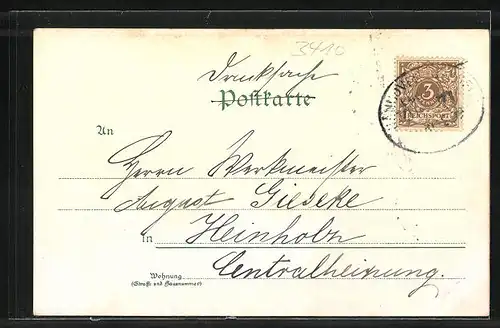 3410
Drucksache
Postkarte
3
REICHSPOST
HANNOVER
An
Herrn Werkmeister
August Gieseke
In Heinholz
Centralheizung.
Wohnung
(Straße und Hausnummer)